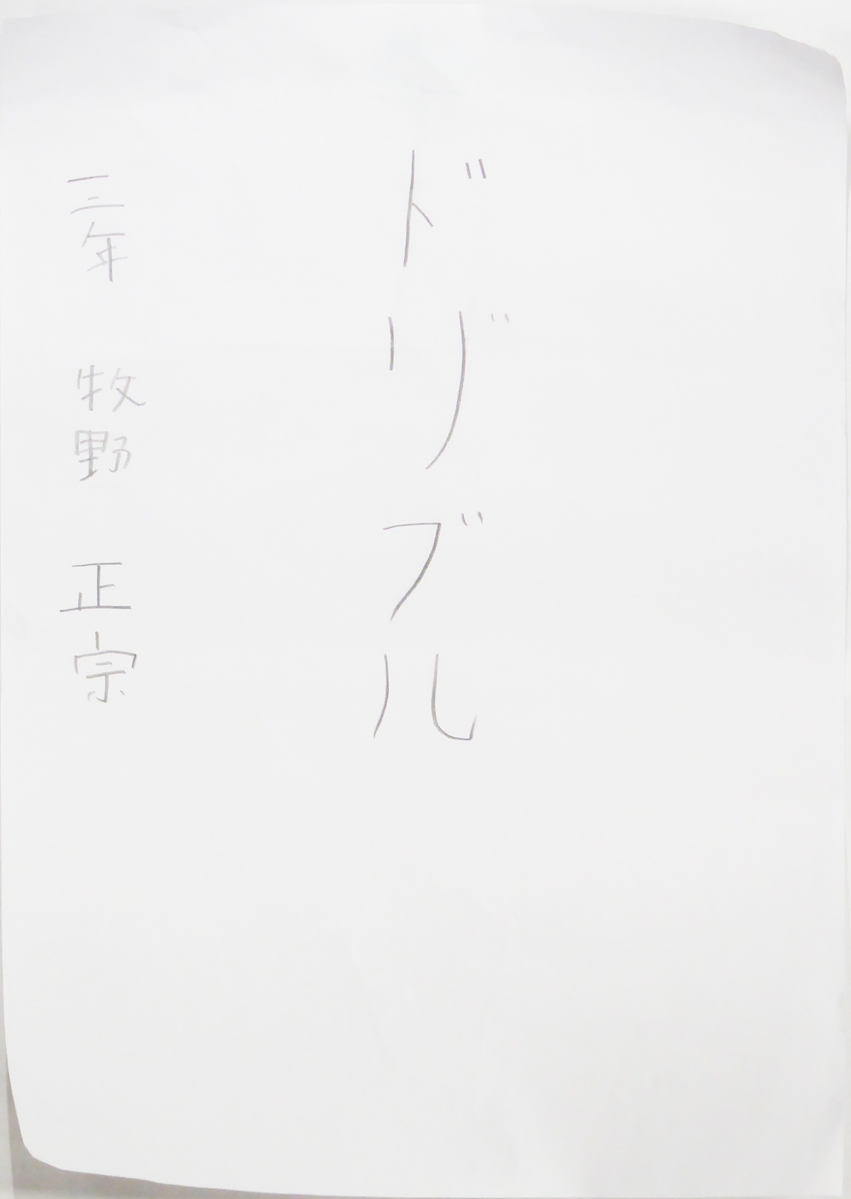 ドリ゙ブル
三年 牧野 正宗